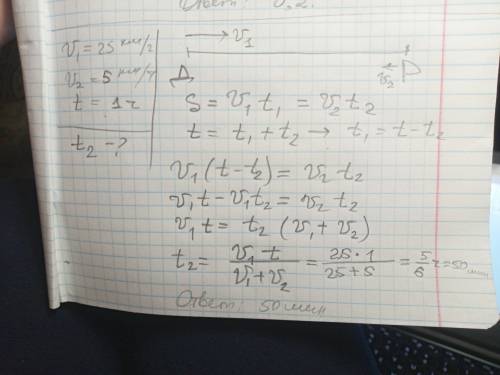 Ответ: 0,2.
v₁ = 25 км/ч
v₂ = 5 км/ч
t = 1 ч
t₂ - ?
v₁
Д
v₂
S = v₁ t₁ = v₂ t₂
t = t₁ + t₂ → t₁ = t - t₂
v₁ (t - t₂) = v₂ t₂
v₁t - v₁t₂ = v₂ t₂
v₁ t = t₂ (v₁ + v₂)
t₂ = v₁ t / v₁ + v₂ = 25 · 1 / 25 + 5 = 5/6 ч = 50 мин
Ответ: 50 мин